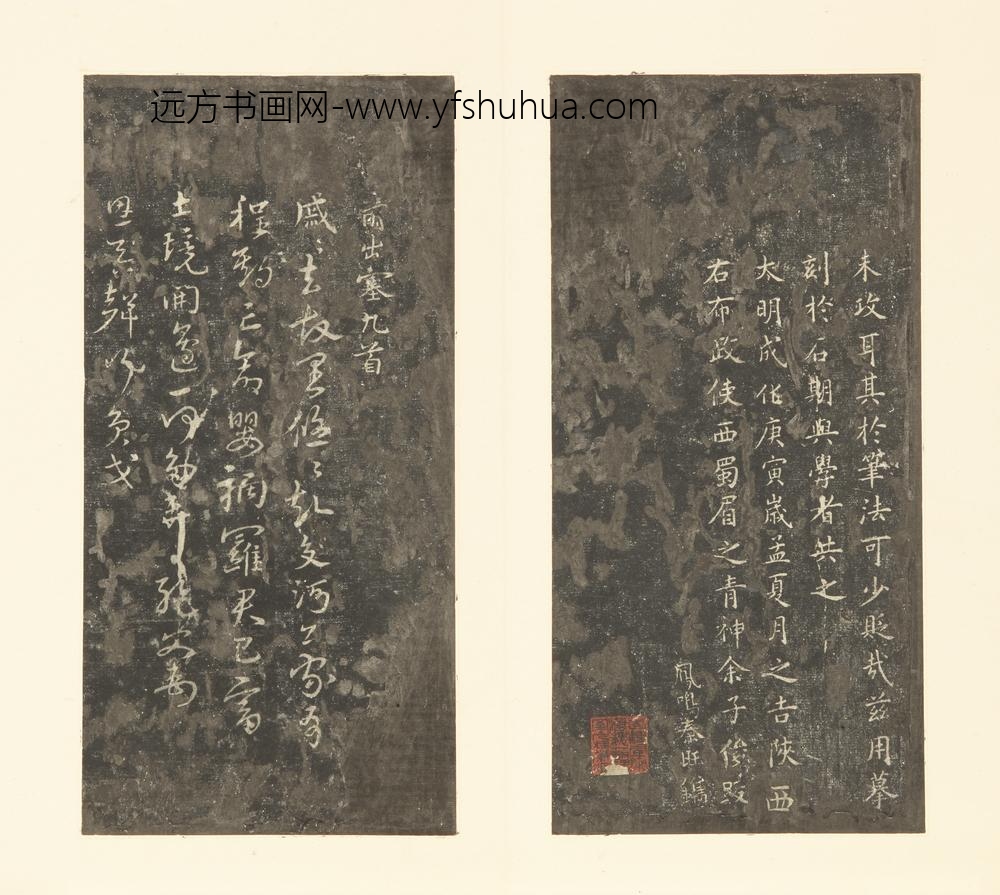 远方书画网-www.yfshuhua.com
未改耳其於筆法可少貶哉茲用摹
刻於石期與學者共之
大明成化庚寅歲孟夏月之吉陝西
右布政使西蜀眉之青神余子俊跋
秦旺鐫
前出塞九首
戚〻去故里悠〻赴交河公家有
程期亡命嬰禍羅君已富
土境開邊一何多棄絕父母
恩吞聲行負戈